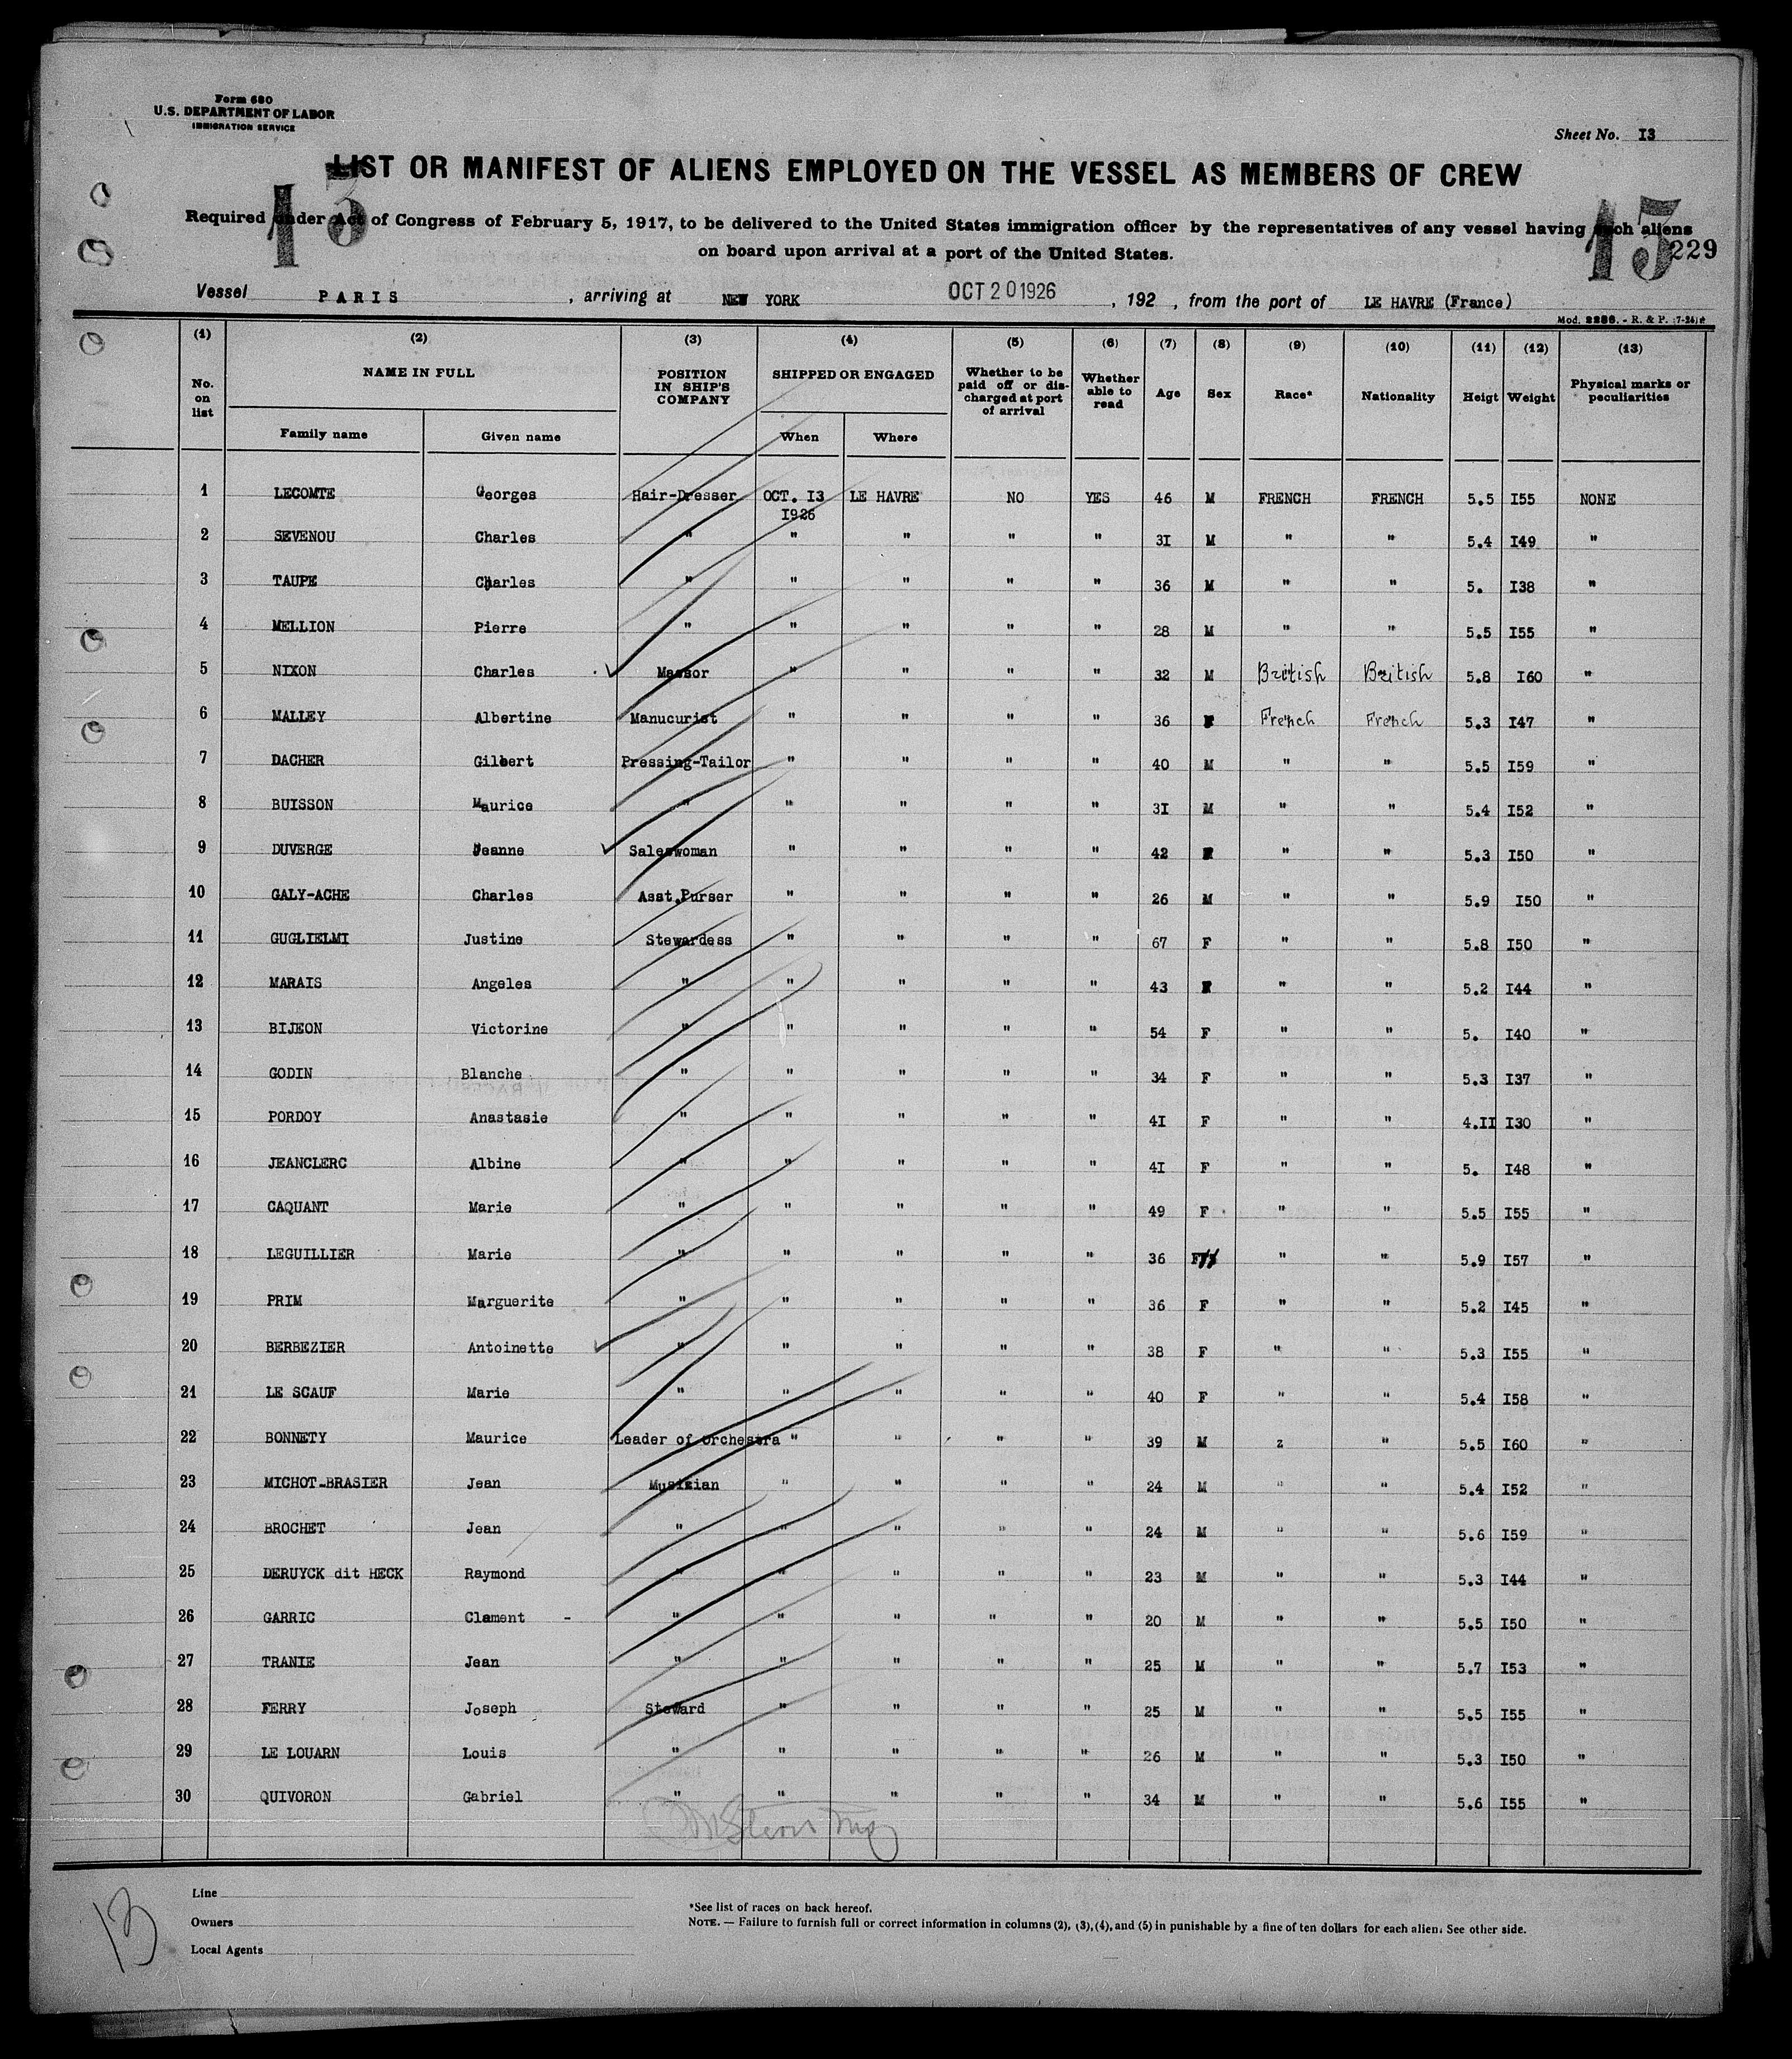 Form 680
U.S. DEPARTMENT OF LABOR
IMMIGRATION SERVICE
Sheet No. I3
LIST OR MANIFEST OF ALIENS EMPLOYED ON THE VESSEL AS MEMBERS OF CREW
13 13
Required under Act of Congress of February 5, 1917, to be delivered to the United States immigration officer by the representatives of any vessel having such aliens
on board upon arrival at a port of the United States.
229
Vessel PARIS , arriving at NEW YORK OCT 20 1926 , 192 , from the port of LE HAVRE (France)
Mod. 2286. - R. & P. (7-24)
(1) (2) (3) (4) (5) (6) (7) (8) (9) (10) (11) (12) (13)
No. on list NAME IN FULL POSITION IN SHIP'S COMPANY SHIPPED OR ENGAGED Whether to be paid off or discharged at port of arrival Whether able to read Age Sex Race* Nationality Heigt Weight Physical marks or peculiarities
Family name Given name When Where
1 LECOMTE Georges Hair-Dresser OCT. I3 LE HAVRE NO YES 46 M FRENCH FRENCH 5.5 I55 NONE
I926
2 SEVENOU Charles " " " " " 3I M " " 5.4 I49 "
3 TAUPE Charles " " " " " 36 M " " 5. I38 "
4 MELLION Pierre " " " " " 28 M " " 5.5 I55 "
5 NIXON Charles Massor " " " " 32 M British British 5.8 I60 "
6 MALLEY Albertine Manucurist " " " " 36 F French French 5.3 I47 "
7 DACHER Gilbert Pressing-Tailor " " " " 40 M " " 5.5 I59 "
8 BUISSON Maurice " " " " " 3I M " " 5.4 I52 "
9 DUVERGE Jeanne Saleswoman " " " " 42 F " " 5.3 I50 "
10 GALY-ACHE Charles Asst.Purser " " " " 26 M " " 5.9 I50 "
11 GUGLIELMI Justine Stewardess " " " " 67 F " " 5.8 I50 "
12 MARAIS Angeles " " " " " 43 F " " 5.2 I44 "
13 BIJEON Victorine " " " " " 54 F " " 5. I40 "
14 GODIN Blanche " " " " " 34 F " " 5.3 I37 "
15 PORDOY Anastasie " " " " " 4I F " " 4.II I30 "
16 JEANCLERC Albine " " " " " 4I F " " 5. I48 "
17 CAQUANT Marie " " " " " 49 F " " 5.5 I55 "
18 LEGUILLIER Marie " " " " " 36 F " " 5.9 I57 "
19 PRIM Marguerite " " " " " 36 F " " 5.2 I45 "
20 BERBEZIER Antoinette " " " " " 38 F " " 5.3 I55 "
21 LE SCAUF Marie " " " " " 40 F " " 5.4 I58 "
22 BONNETY Maurice Leader of Orchestra " " " " 39 M z " 5.5 I60 "
23 MICHOT-BRASIER Jean Musizian " " " " 24 M " " 5.4 I52 "
24 BROCHET Jean " " " " " 24 M " " 5.6 I59 "
25 DERUYCK dit HECK Raymond " " " " " 23 M " " 5.3 I44 "
26 GARRIC Clement - " " " " " 20 M " " 5.5 I50 "
27 TRANIE Jean " " " " " 25 M " " 5.7 I53 "
28 FERRY Joseph Steward " " " " 25 M " " 5.5 I55 "
29 LE LOUARN Louis " " " " " 26 M " " 5.3 I50 "
30 QUIVORON Gabriel " " " " " 34 M " " 5.6 I55 "
13
Line
Owners
Local Agents
*See list of races on back hereof.
NOTE. — Failure to furnish full or correct information in columns (2), (3), (4), and (5) in punishable by a fine of ten dollars for each alien. See other side.